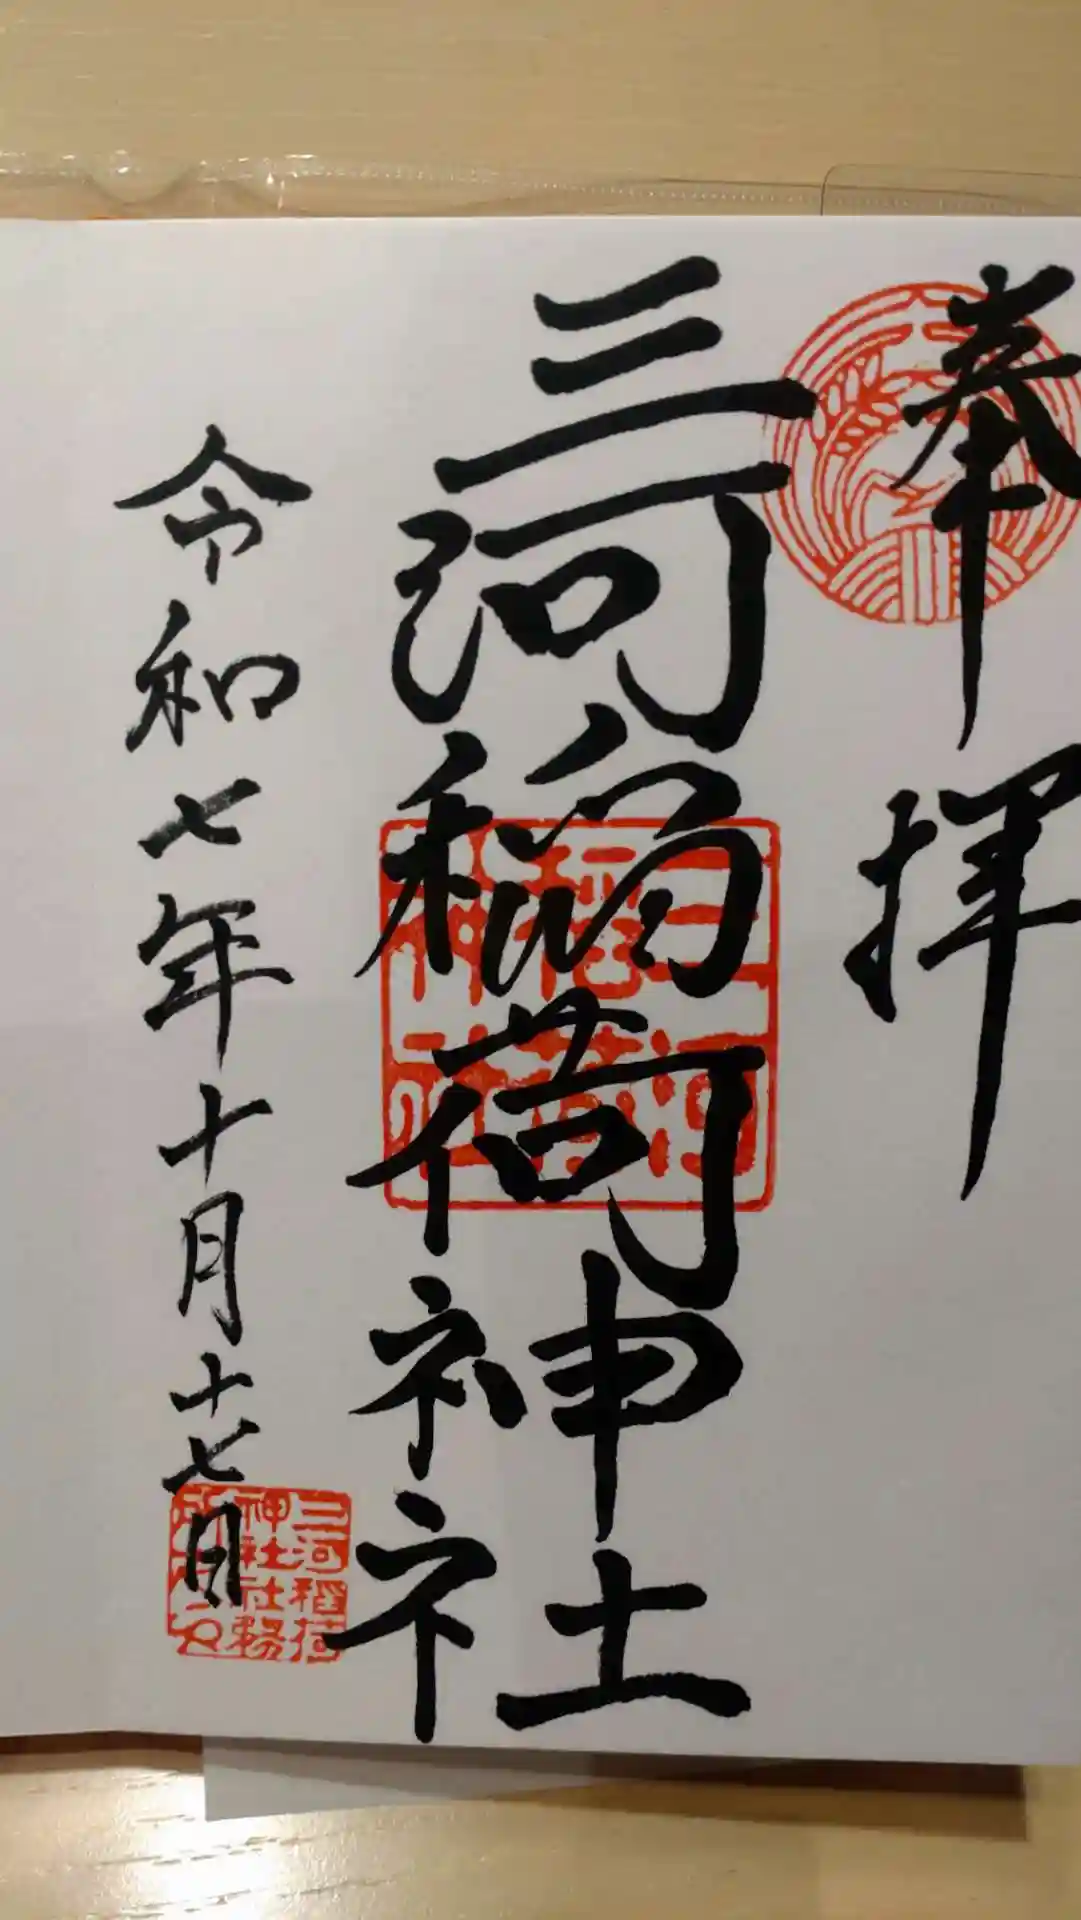 奉拝
三河稲荷神社
三河
稲荷
神社
令和七年十月十七日
三河稲荷
神社社務